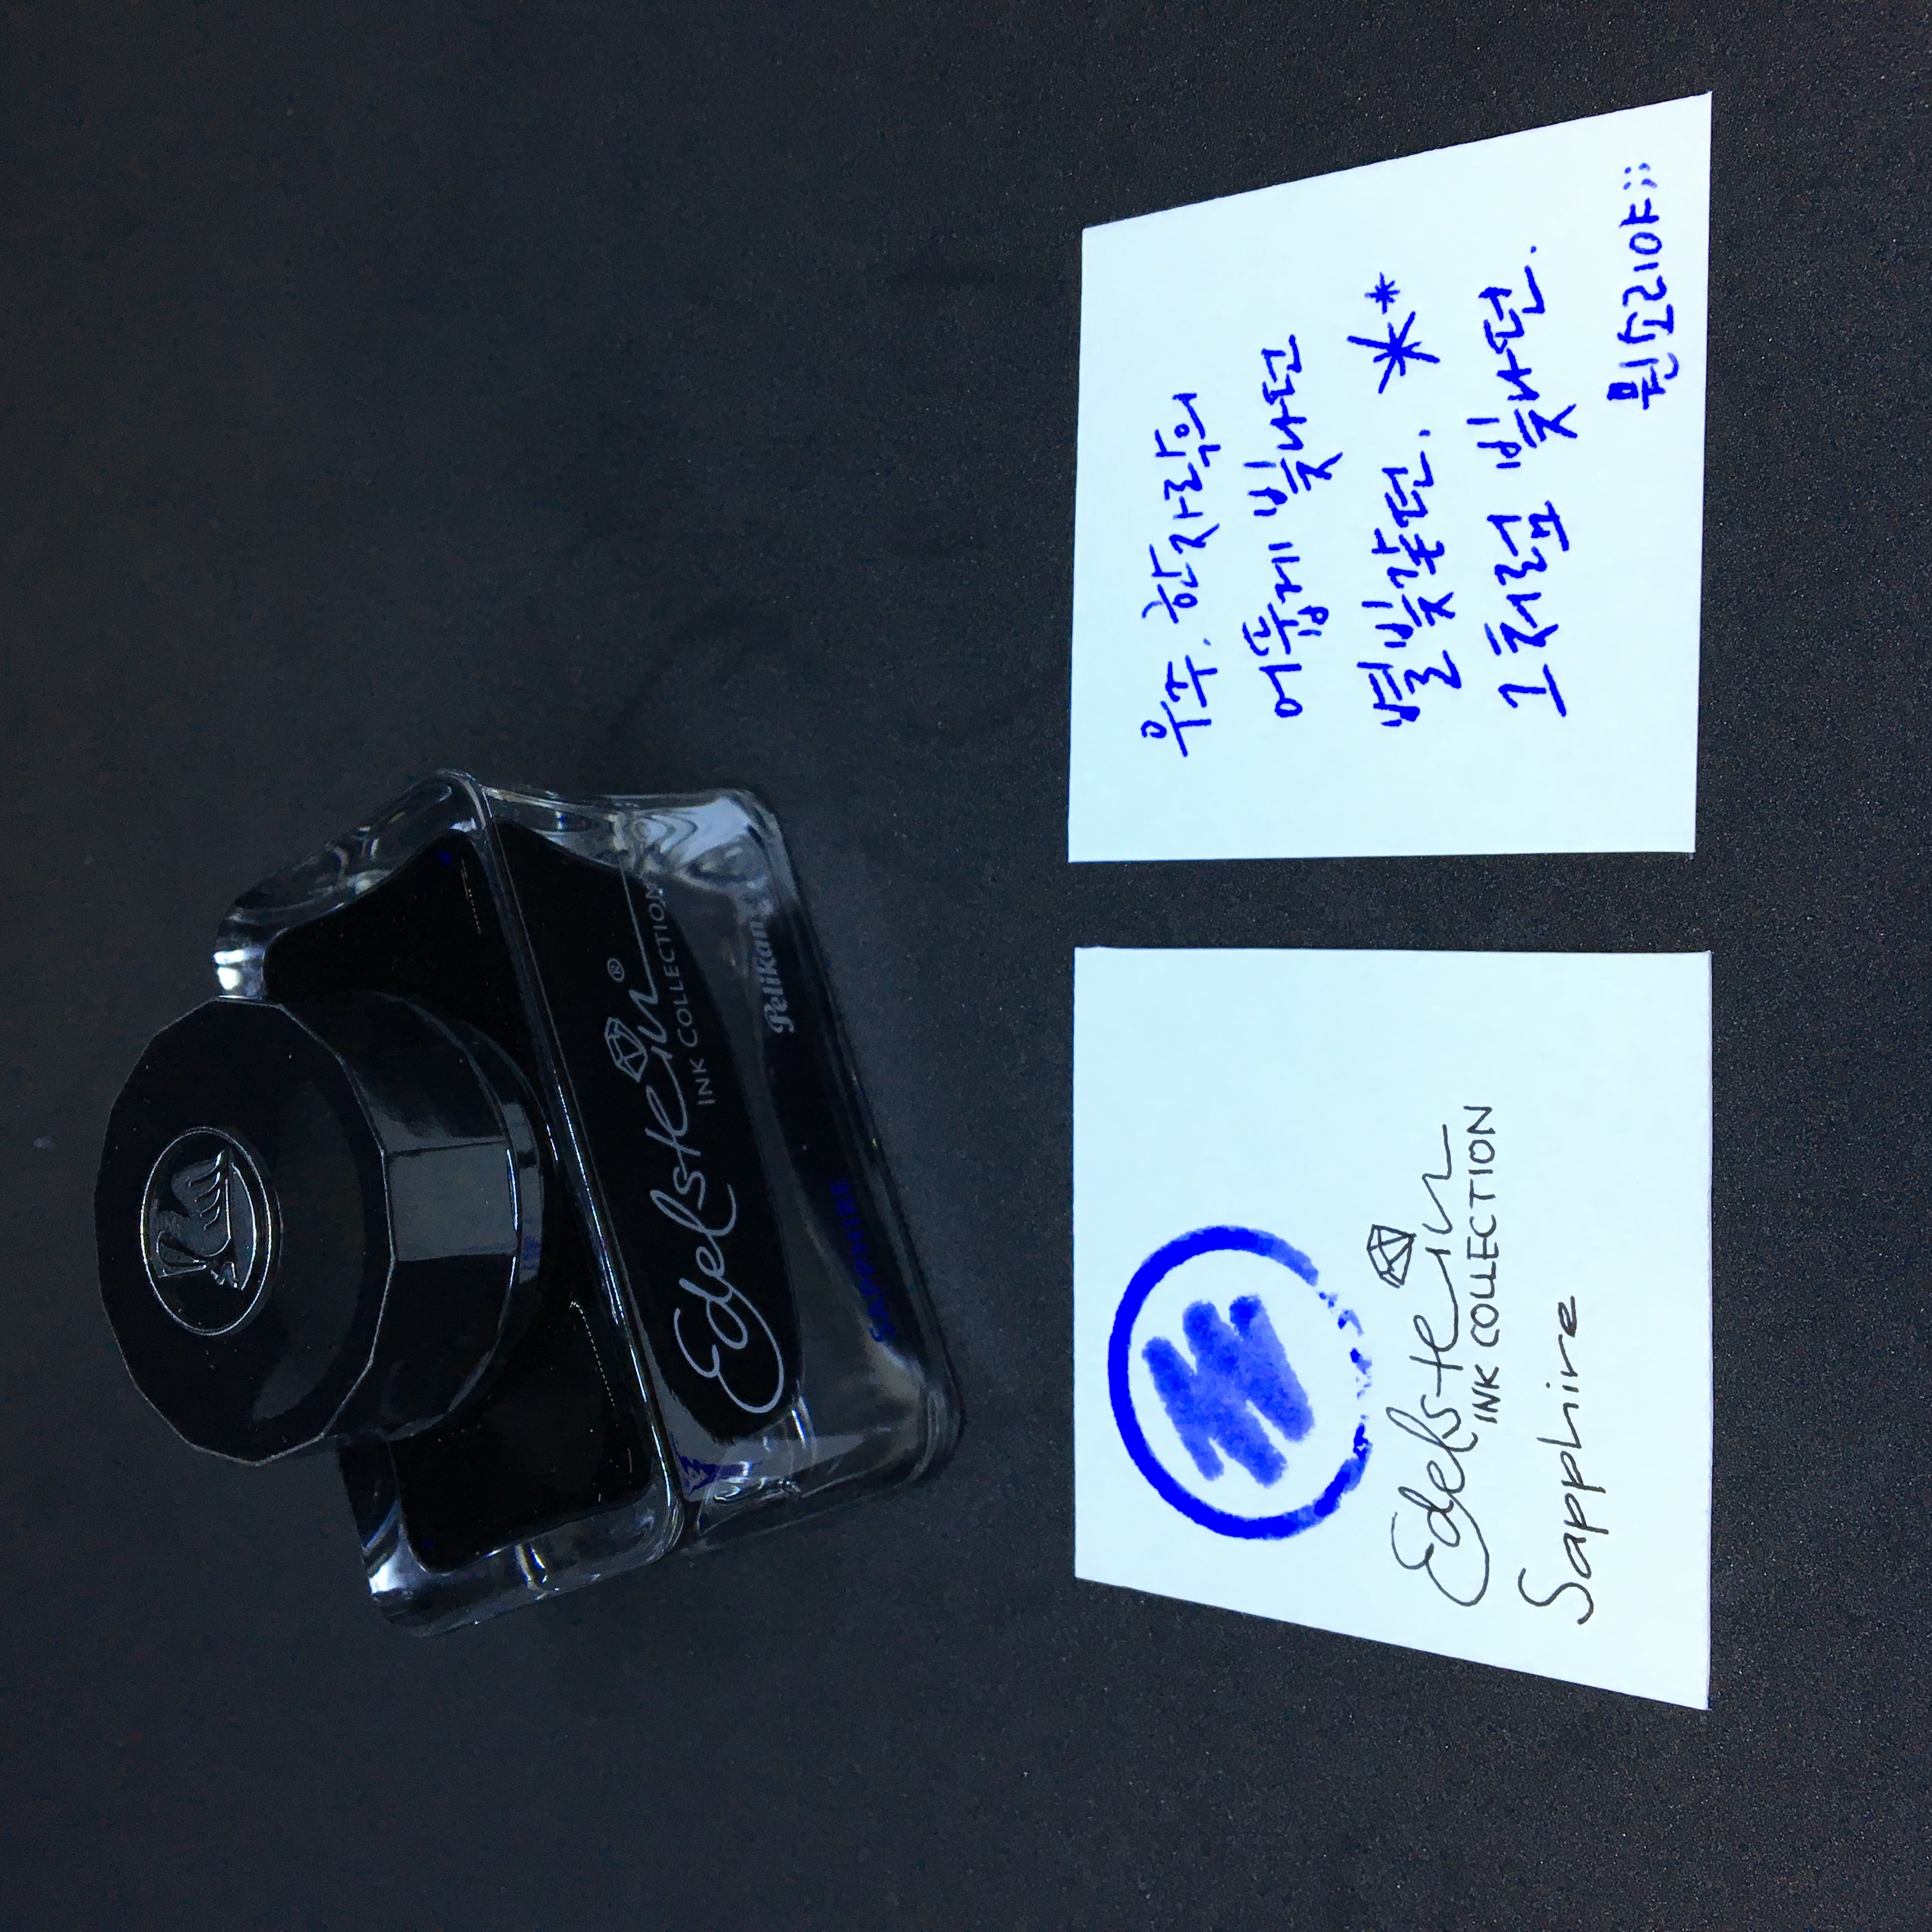 Edelstein®
INK COLLECTION
Pelikan
SAPPHIRE
Edelstein
INK COLLECTION
Sapphire
우주. 한자락의
어둡게 빛나던
별빛같던. **
그처럼 빛나던.
뭔소리야;;